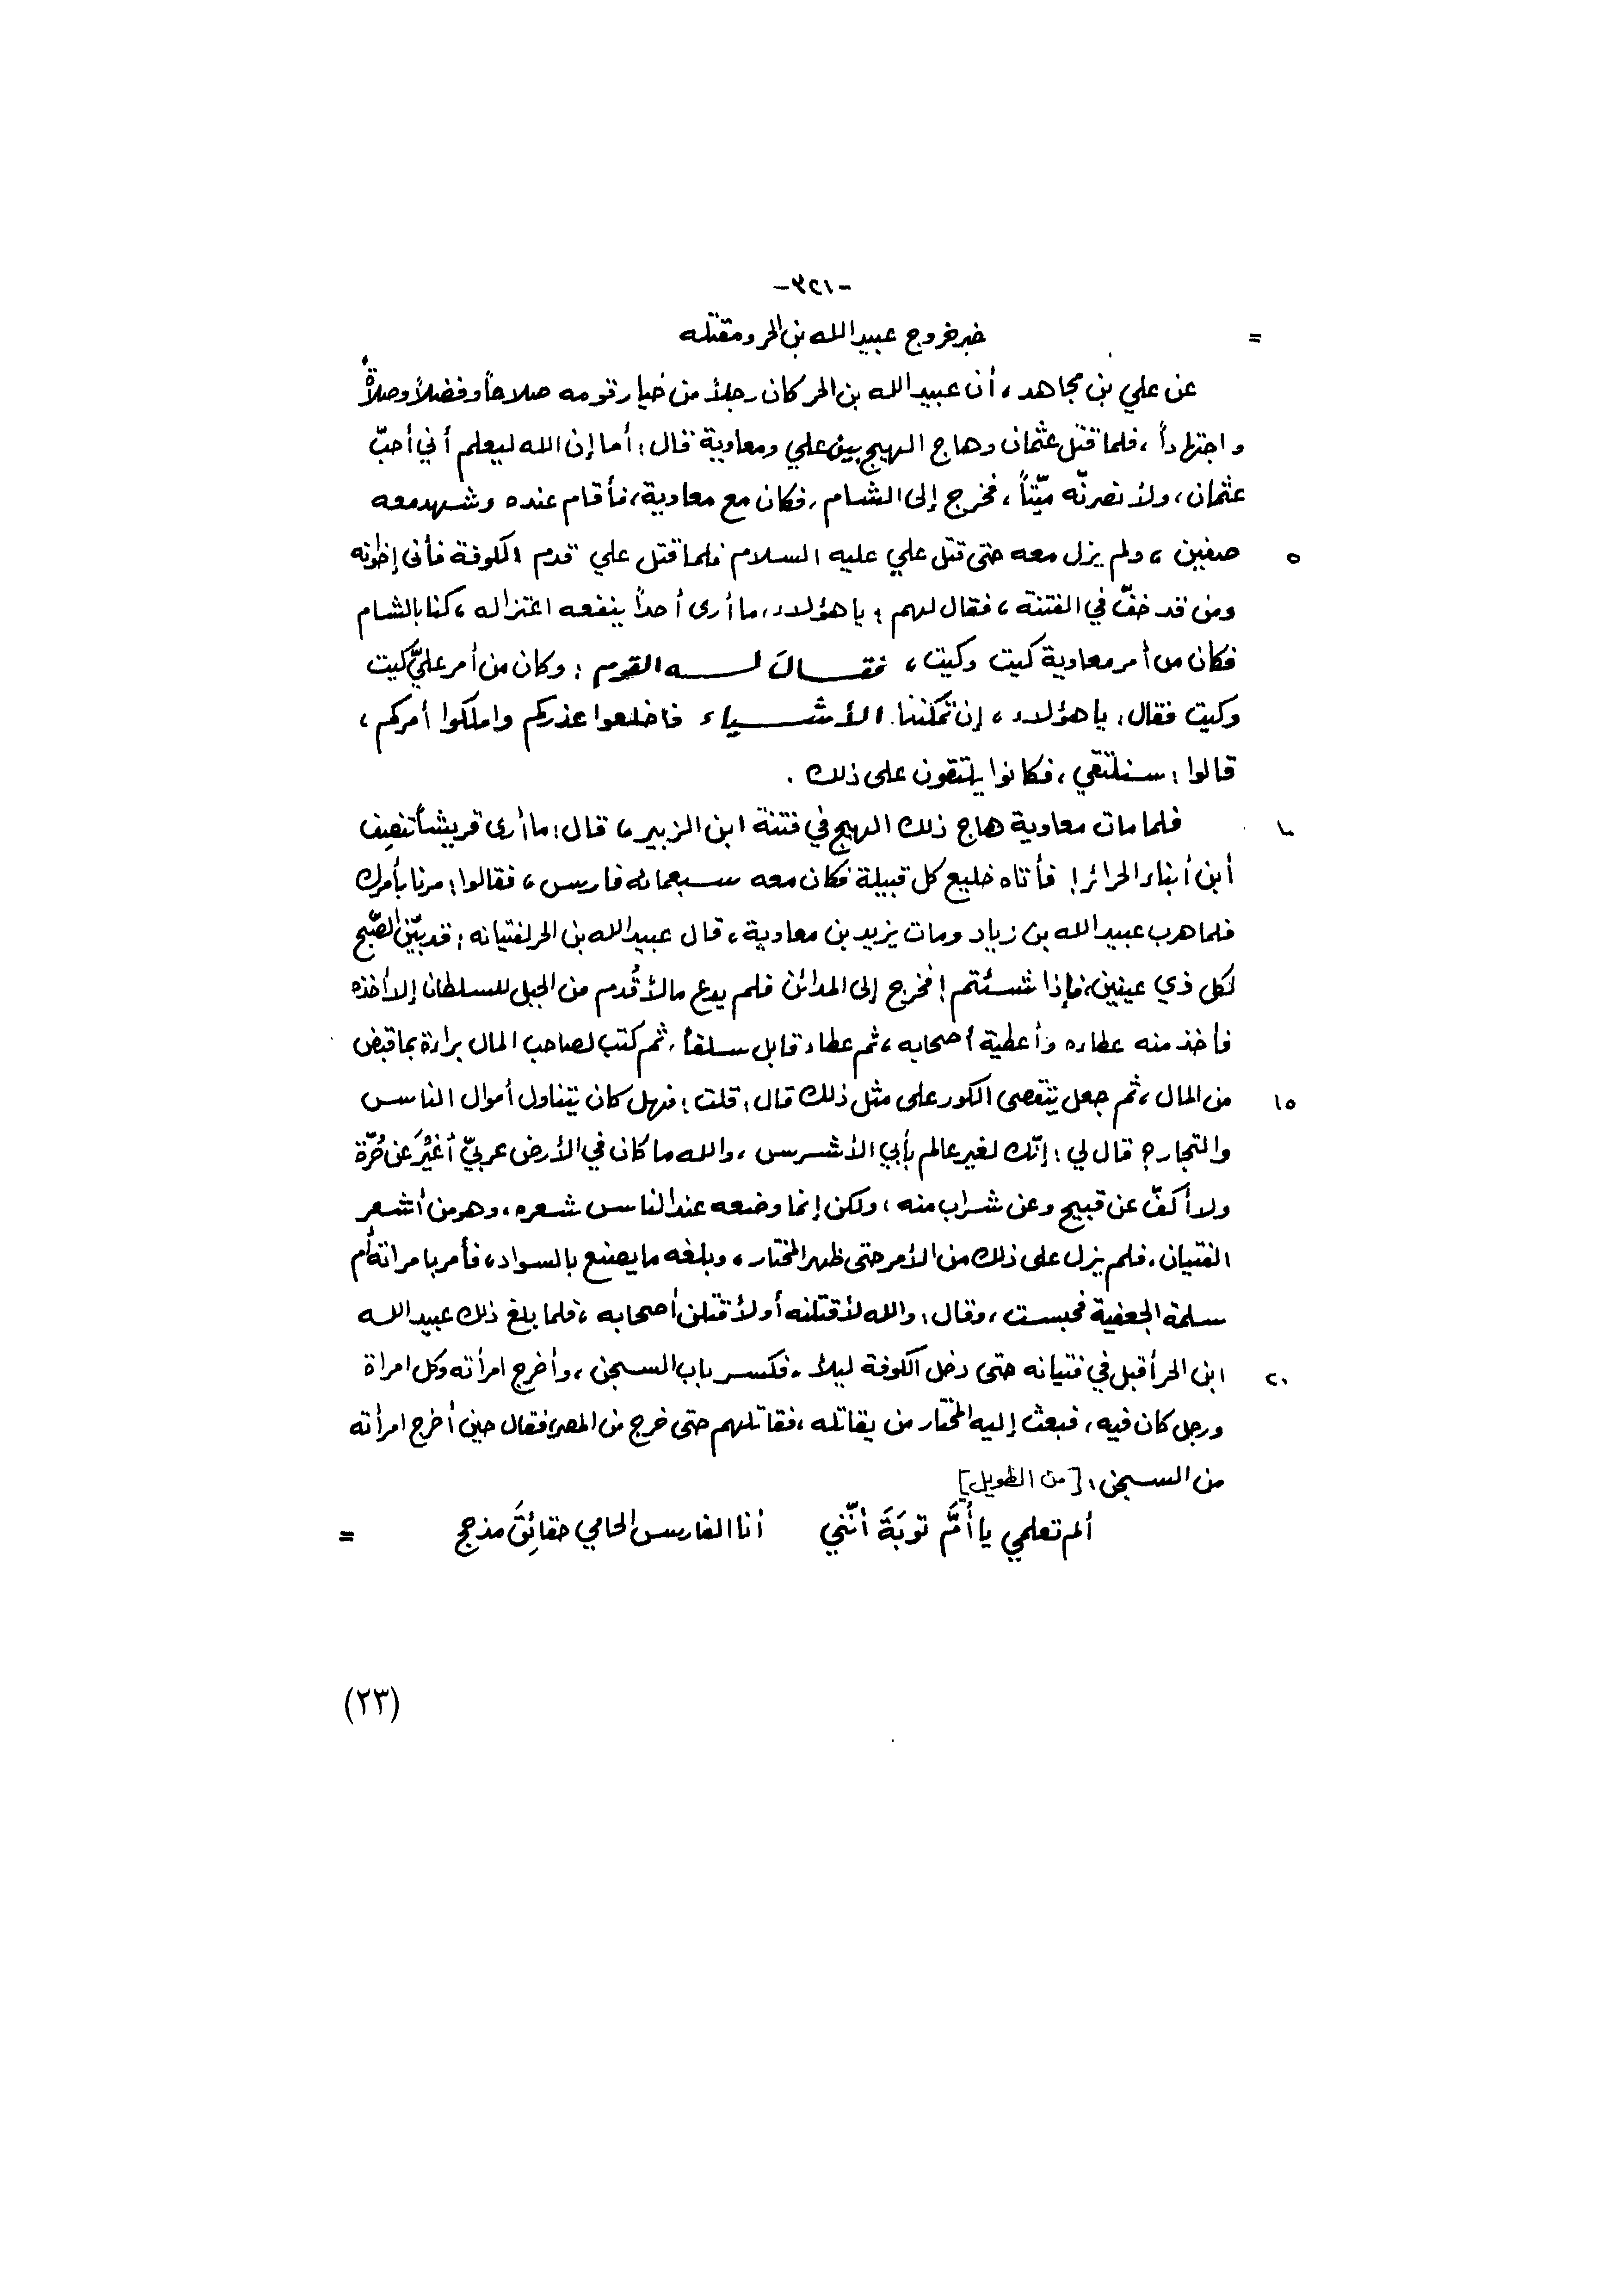 -٣٢١-
= خبر خروج عبيد الله بن الحر ومقتله
عن علي بن مجاهد، أن عبيد الله بن الحر كان رجلاً من خيار قومه صلاحاً وفضلاً وصلاةً
واجتهاداً، فلما قتل عثمان وهاج الهيج بين علي ومعاوية قال: أما إن الله ليعلم أني أحبّ
عثمان، ولأنصرنّه ميّتاً، فخرج إلى الشام، فكان مع معاوية، فأقام عنده وشهد معه
٥ صفين، ولم يزل معه حتى قتل علي عليه السلام فلما قتل علي قدم الكوفة فأتى إخوانه
ومن قد خفّ في الفتنة، فقال لهم: يا هؤلاء، ما أرى أحداً ينفعه اعتزاله، كنا بالشام
فكان من أمر معاوية كيت وكيت، فقال له القوم: وكان من أمر عليّ كيت
وكيت فقال: يا هؤلاء، إن تمكننا الأشياء فاخلعوا عذركم واملكوا أمركم،
قالوا: سنلتقي، فكانوا يلتقون على ذلك.
١٠ فلما مات معاوية هاج ذلك الهيج في فتنة ابن الزبير، قال: ما أرى قريشاً تنصف
أين أبناء الحرائر! فأتاه خليع كل قبيلة فكان معه سبعمائة فارس، فقالوا: مرنا بأمرك
فلما هرب عبيد الله بن زياد ومات يزيد بن معاوية، قال عبيد الله بن الحر لفتيانه: قد بيّن الصّبح
لكل ذي عينين، فإذا شئتم! فخرج إلى المدائن فلم يدع مالاً قُدم من الجبل للسلطان إلا أخذه
فأخذ منه عطاءه وأعطية أصحابه، ثم عطاء قابل سلفاً، ثم كتب لصاحب المال براءة بما قبض
١٥ من المال، ثم جعل يتقصى الكور على مثل ذلك قال: قلت: فهل كان يتناول أموال الناس
والتجار؟ قال لي: إنّك لغير عالم بأبي الأشرس، والله ما كان في الأرض عربيّ أغْيَرَ عن حُرّة
ولا أكفّ عن قبيح وعن شراب منه، ولكن إنما وضعه عند الناس شعره، وهو من أشعر
الفتيان. فلم يزل على ذلك من الأمر حتى ظهر المختار، وبلغه ما يصنع بالسواد، فأمر بامراته أُم
سلمة الجعفية فحبست، وقال: والله لأقتلنه أو لأقتلن أصحابه، فلما بلغ ذلك عبيد الله
٢٠ ابن الحر أقبل في فتيانه حتى دخل الكوفة ليلاً، فكسر باب السجن، وأخرج امرأته وكل امراة
ورجل كان فيه، فبعث إليه المختار من يقاتله، فقاتلهم حتى خرج من المصر، فقال حين أخرج امرأته
من السجن: [من الطويل]
ألم تعلمي يا أُمَّ توبَةَ أنّني أنا الفارس الحامي حقائِقَ مذحج =
(٢٣)